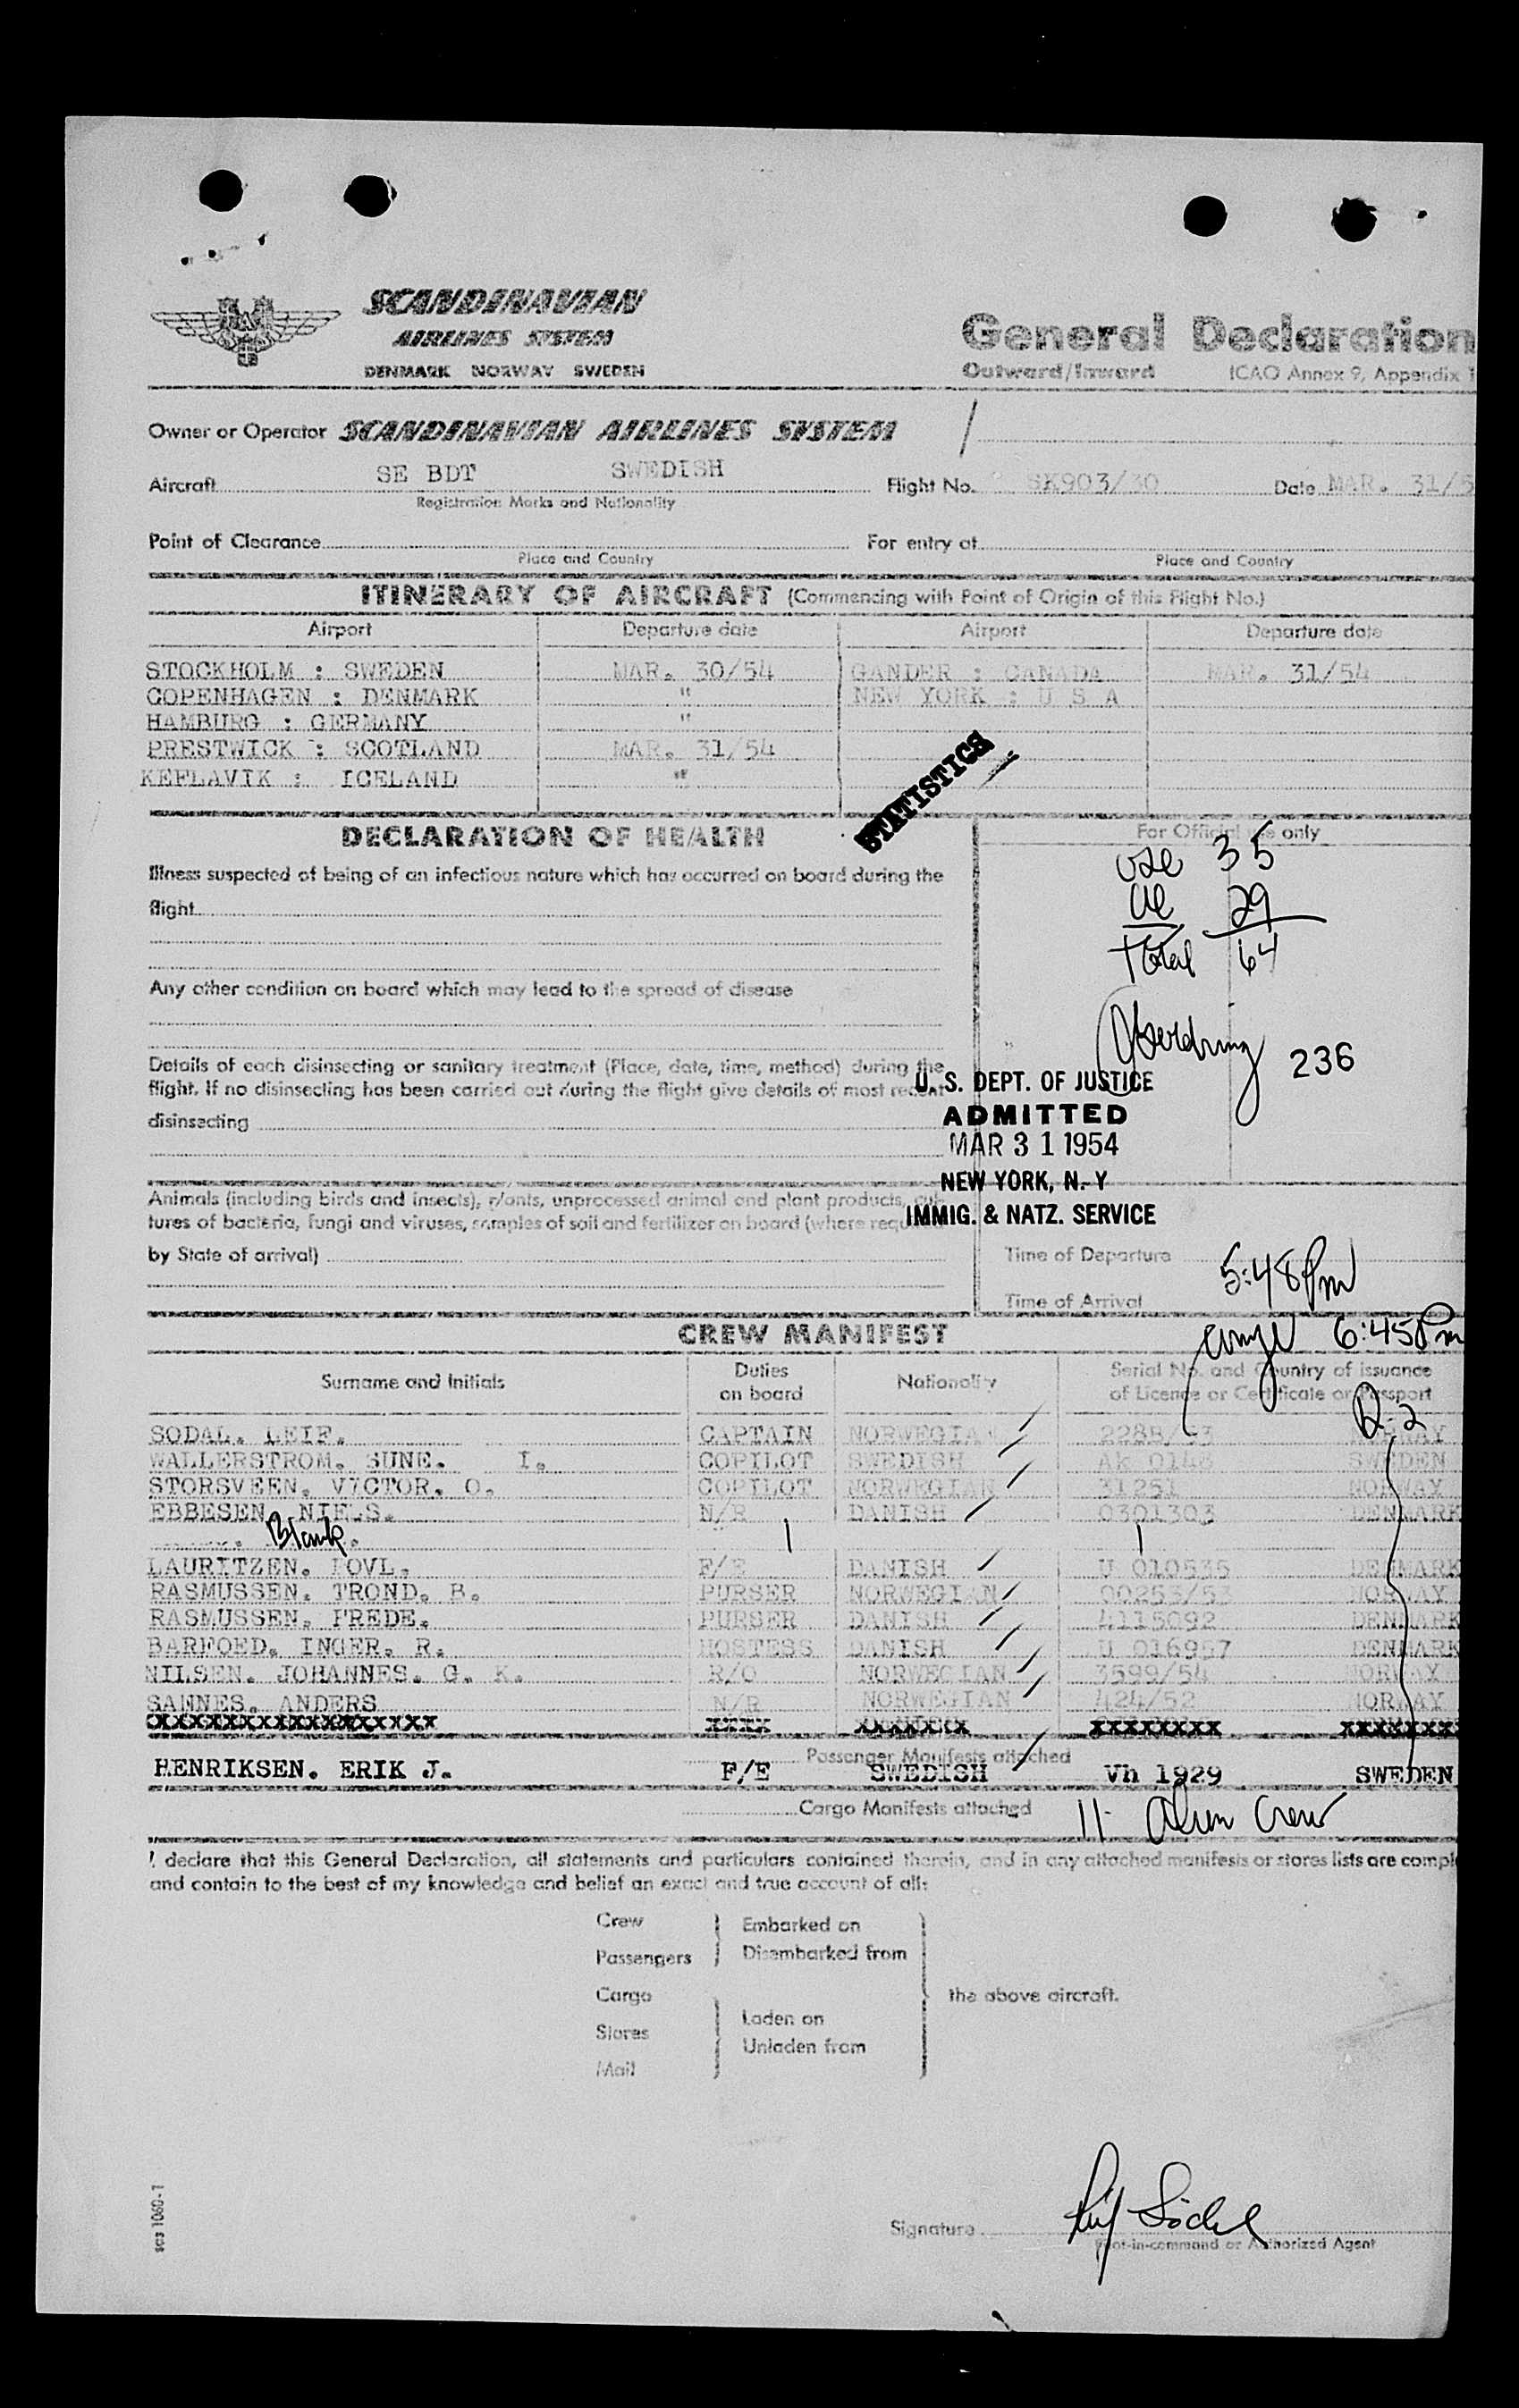 SCANDINAVIAN
AIRLINES SYSTEM
DENMARK NORWAY SWEDEN
General Declaration
Outward/Inward ICAO Annex 9, Appendix 1
Owner or Operator SCANDINAVIAN AIRLINES SYSTEM
Aircraft SE BDT SWEDISH Flight No. SK903/30 Date MAR. 31/5
Registration Marks and Nationality
Point of Clearance For entry at
Place and Country Place and Country
ITINERARY OF AIRCRAFT (Commencing with Point of Origin of this Flight No.)
Airport Departure date Airport Departure date
STOCKHOLM : SWEDEN MAR. 30/54 GANDER : CANADA MAR. 31/54
COPENHAGEN : DENMARK " NEW YORK : U S A
HAMBURG : GERMANY "
PRESTWICK : SCOTLAND MAR. 31/54
KEFLAVIK : ICELAND "
STATISTICS
DECLARATION OF HEALTH
For Official use only
Illness suspected of being of an infectious nature which has occurred on board during the
flight
35
29
Total 64
Any other condition on board which may lead to the spread of disease
236
Details of each disinsecting or sanitary treatment (Place, date, time, method) during the
flight. If no disinsecting has been carried out during the flight give details of most recent
disinsecting
U. S. DEPT. OF JUSTICE
ADMITTED
MAR 31 1954
NEW YORK, N. Y
IMMIG. & NATZ. SERVICE
Animals (including birds and insects), plants, unprocessed animal and plant products, cul-
tures of bacteria, fungi and viruses, samples of soil and fertilizer on board (where required
by State of arrival)
Time of Departure
5:48 Pm
Time of Arrival
6:45 Pm
CREW MANIFEST
Surname and Initials Duties on board Nationality Serial No. and Country of issuance of Licence or Certificate or Passport
R-2
SODAL. LEIF. CAPTAIN NORWEGIAN 228B/53 NORWAY
WALLERSTROM. SUNE. I. COPILOT SWEDISH Ak 0148 SWEDEN
STORSVEEN. VICTOR. O. COPILOT NORWEGIAN 31251 NORWAY
EBBESEN. NIELS. N/R DANISH 0301303 DENMARK
Blank.
LAURITZEN. POVL. F/E DANISH U 010535 DENMARK
RASMUSSEN. TROND. B. PURSER NORWEGIAN 00253/53 NORWAY
RASMUSSEN. FREDE. PURSER DANISH 4115092 DENMARK
BARFOED. INGER. R. HOSTESS DANISH U 016957 DENMARK
NILSEN. JOHANNES. G. K. R/O NORWEGIAN 3599/54 NORWAY
SANNES. ANDERS N/R NORWEGIAN 424/52 NORWAY
XXXXXXXXXXXXXXXXXX XXXX XXXXXXX XXXXXXXX XXXXXXXX
Passenger Manifests attached
HENRIKSEN. ERIK J. F/E SWEDISH Vh 1929 SWEDEN
Cargo Manifests attached 11- Alien Crew
I declare that this General Declaration, all statements and particulars contained therein, and in any attached manifests or stores lists are compl
and contain to the best of my knowledge and belief an exact and true account of all:
Crew Embarked on
Passengers Disembarked from
Cargo the above aircraft.
Laden on
Stores
Unladen from
Mail
scs 1060-1
Signature Leif Södal
Pilot-in-command or Authorized Agent